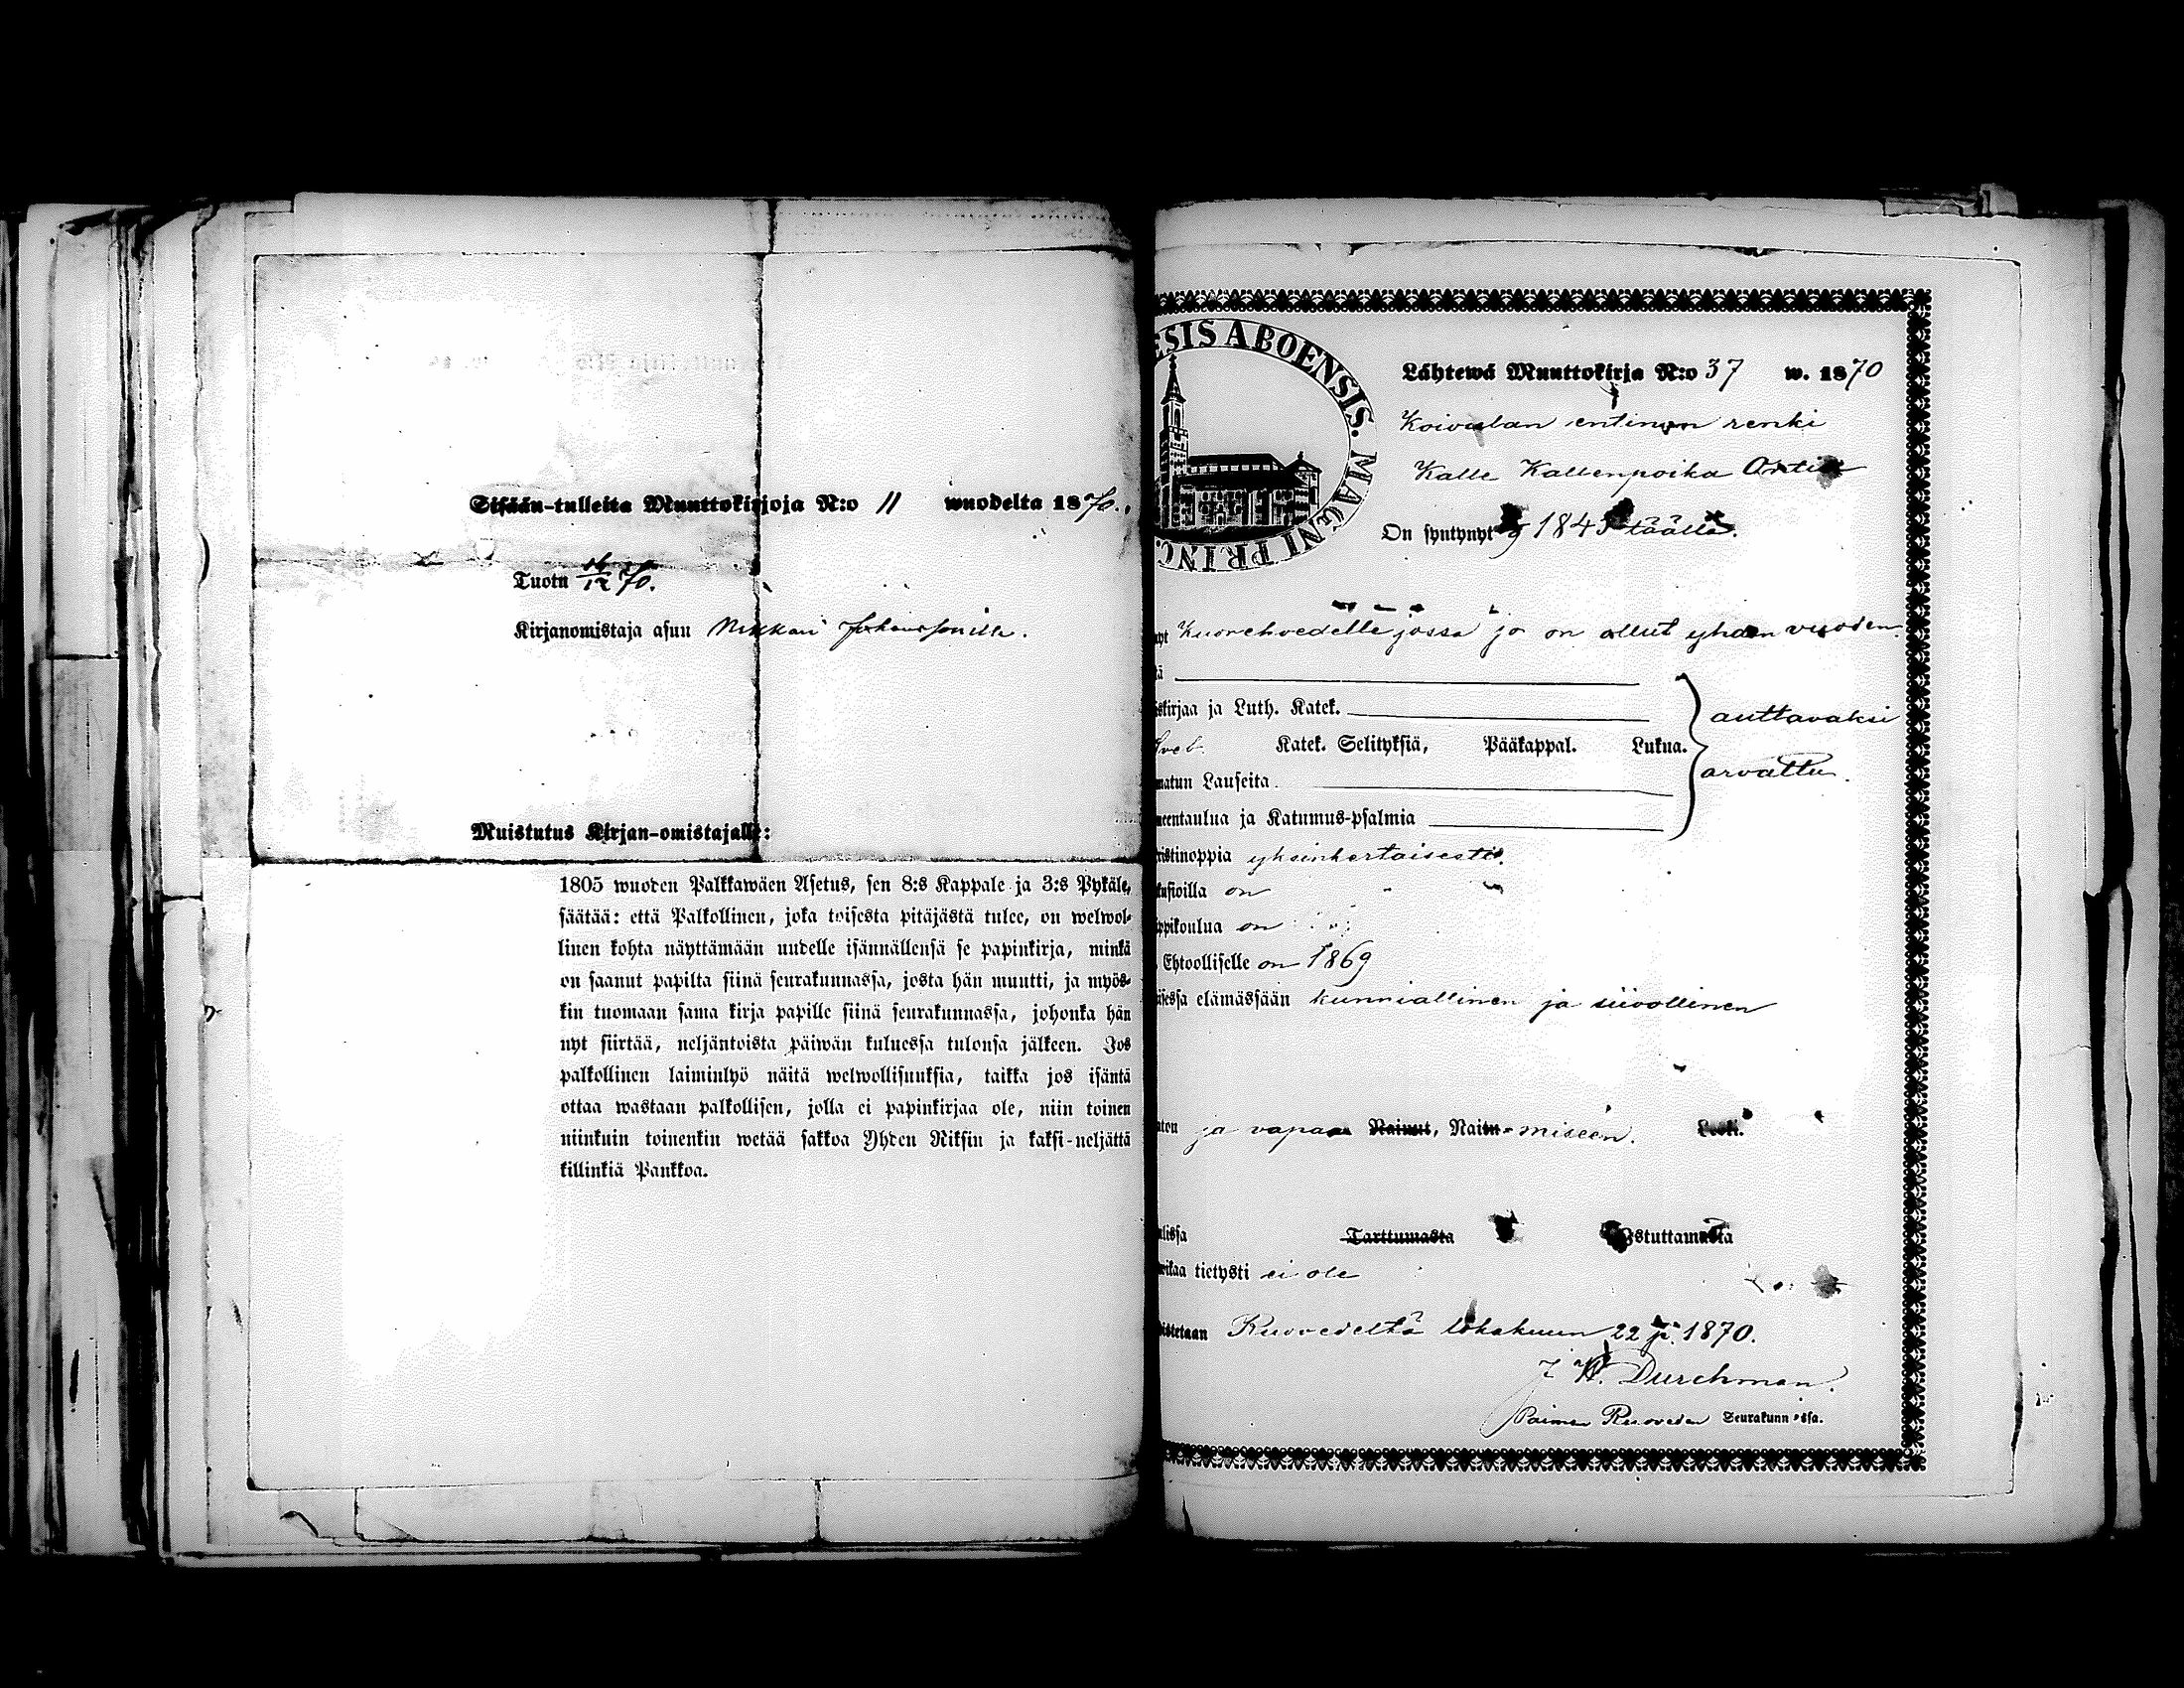 Sisään-tulleita Muuttokirjoja N:o 11 wuodelta 1870.
Tuotu 16/12 70.
Kirjanomistaja asuu
Muistutus Kirjan-omistajalle:
1805 wuoden Palkkawäen Asetus, sen 8:s Kappale ja 3:s Pykäle,
säätää: että Palkollinen, joka toisesta pitäjästä tulee, on welwol-
linen kohta näyttämään uudelle isännällensä se papinkirja, minkä
on saanut papilta siinä seurakunnassa, josta hän muutti, ja myös-
kin tuomaan sama kirja papille siinä seurakunnassa, johonka hän
nyt siirtää, neljäntoista päiwän kuluessa tulonsa jälkeen. Jos
palkollinen laiminlyö näitä welwollisuuksia, taikka jos isäntä
ottaa wastaan palkollisen, jolla ei papinkirjaa ole, niin toinen
niinkuin toinenkin wetää sakkoa Yhden Riksin ja kaksi-neljättä
killinkiä Pankkoa.
ESIS ABOENSIS. MAGNI PRINC.
Lähtewä Muuttokirja N:o 37 w. 1870
Koivulan entinen renki
Kalle Kallenpoika
On syntynyt 1845 täällä.
Kuorehvedelle jossa jo on ollut yhden vuoden.
kirjaa ja Luth. Katek.
Sveb. Katek. Selityksiä, Pääkappal. Lukua.
auttavaksi
arvattu.
matun Lauseita.
eentaulua ja Katumus-psalmia
istinoppia yksinkertaisesti.
kusioilla on "
ppikoulua on "
Ehtoolliselle on 1869
isessa elämässään kunniallinen ja siivollinen
aton ja vapaa Nainut, Naitu-miseen. Leski.
ulissa Tarttumasta Istuttamasta
rikaa tietysti ei ole
distetaan Ruovedeltä lokakuun 22 p. 1870.
J. W. Durchman.
Paimen Ruoveden Seurakunnassa.